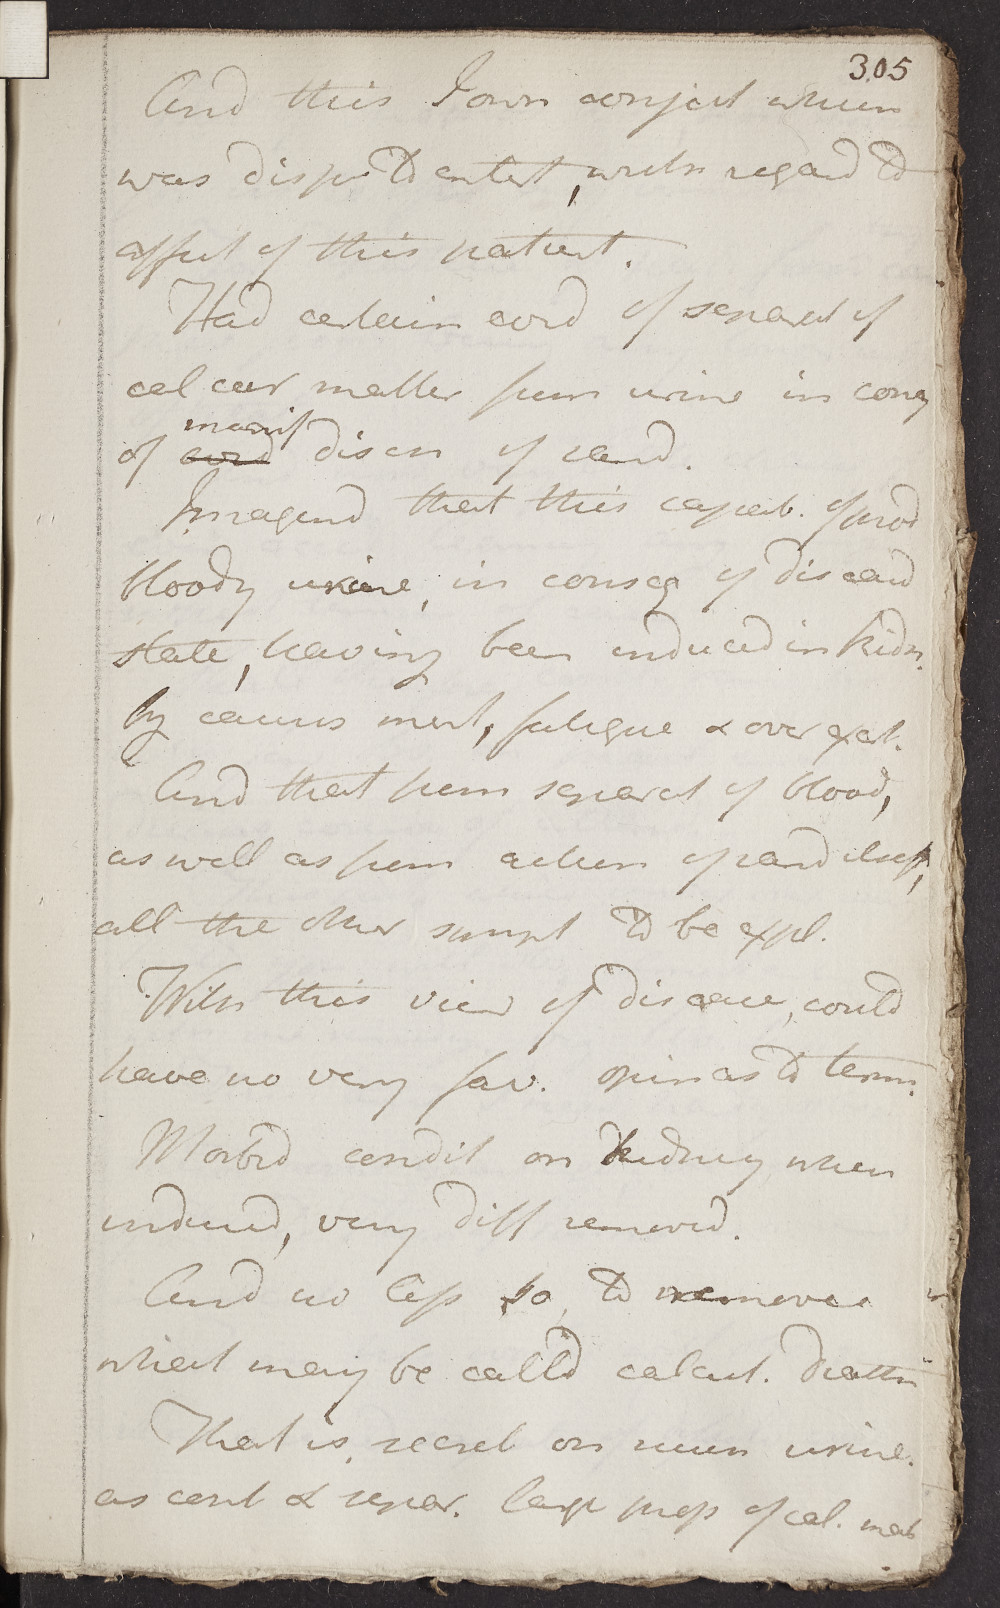 305
And this I own conject when
was dispos'd to entert, with regard to
affect of this patient.
Had certain evid of separat of
calcar matter from urine in conq
manif
of evid disch of sand.
Imagind that this capab. of prod
bloody urine, in conseq of diseasd
state, having been induced in kidn.
by causes ment, fatigue & over exert.
And that from separat of blood,
as well as from action of sand itself,
all the other sympt to be expl.
With this view of disease, could
have no very fav. opin as to term.
Morbid condit on kidney when
induced, very diff removed.
And no less so, to remove
what may be call'd calcul. diath
That is, secret on urine.
as cont & separ. large prop of cal. mat